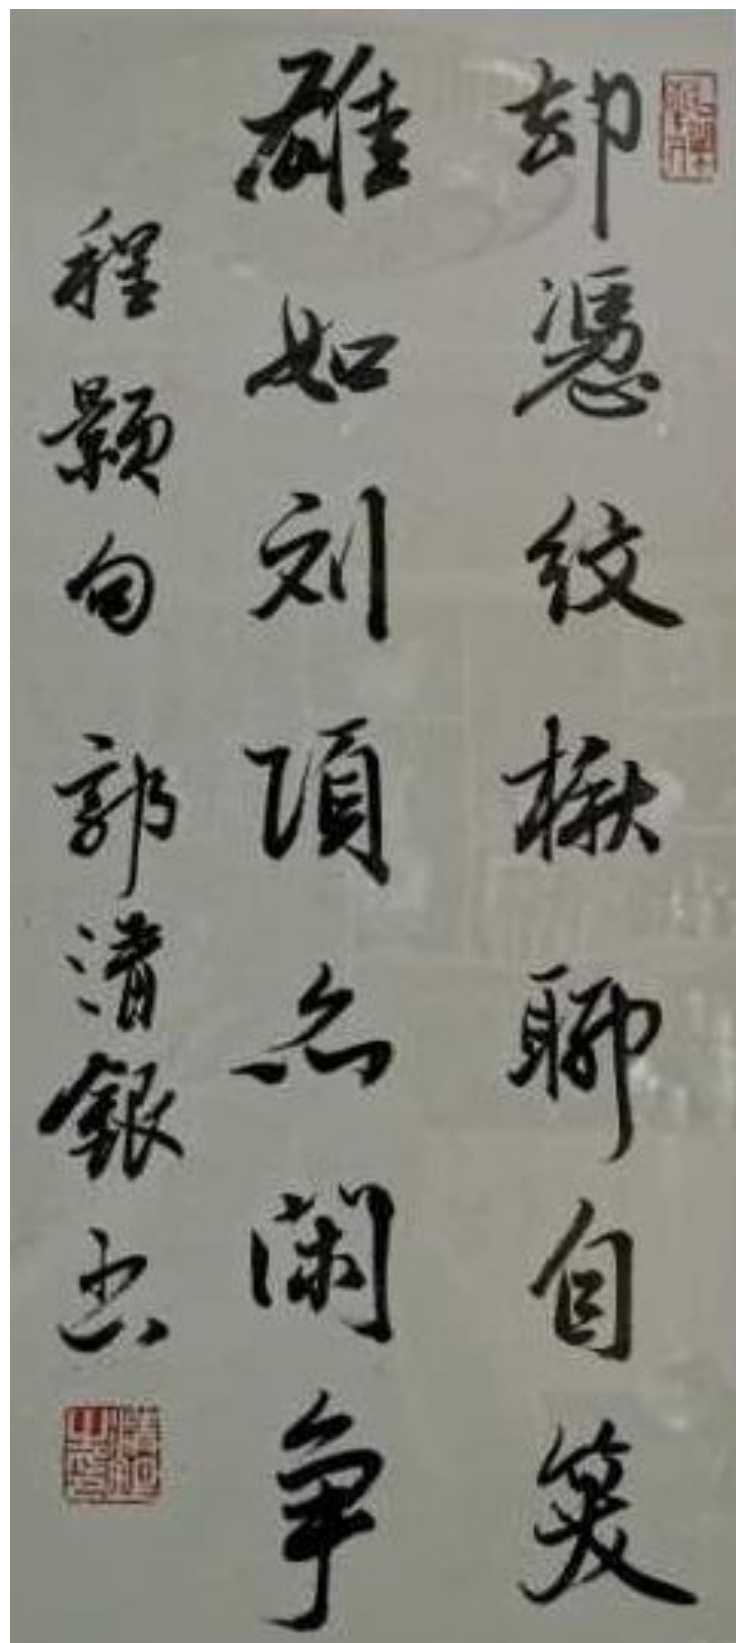 却憑纹楸聊自笑
雄如刘項亦闲争
程颢句 郭清銀书